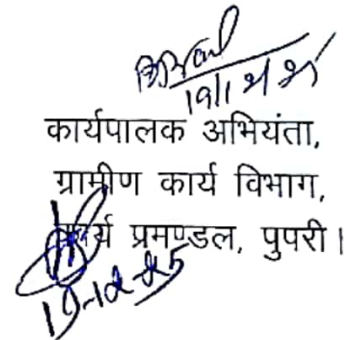 कार्यपालक अभियंता,
ग्रामीण कार्य विभाग,
कार्य प्रमण्डल, पुपरी।
19-12-25